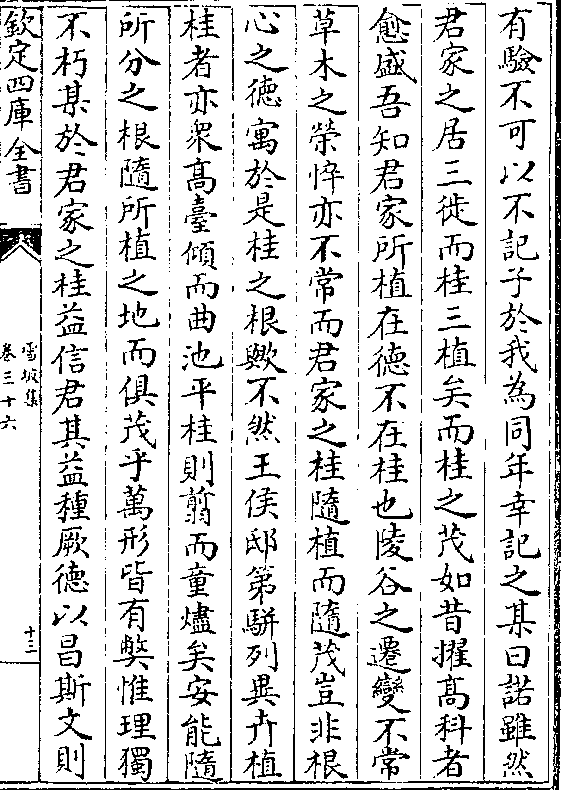 有驗不可以不記子於我為同年幸記之某曰諾雖然
君家之居三徙而桂三植矣而桂之茂如昔擢高科者
愈盛吾知君家所植在德不在桂也陵谷之遷變不常
草木之榮悴亦不常而君家之桂隨植而隨茂豈非根
心之德寓於是桂之根歟不然王侯邸第駢列異卉植
桂者亦衆高臺傾而曲池平桂則翦而童燼矣安能隨
所分之根隨所植之地而俱茂乎萬形皆有弊惟理獨
不朽某於君家之桂益信君其益種厥德以昌斯文則
欽定四庫全書
雪坡集
卷三十六
十三